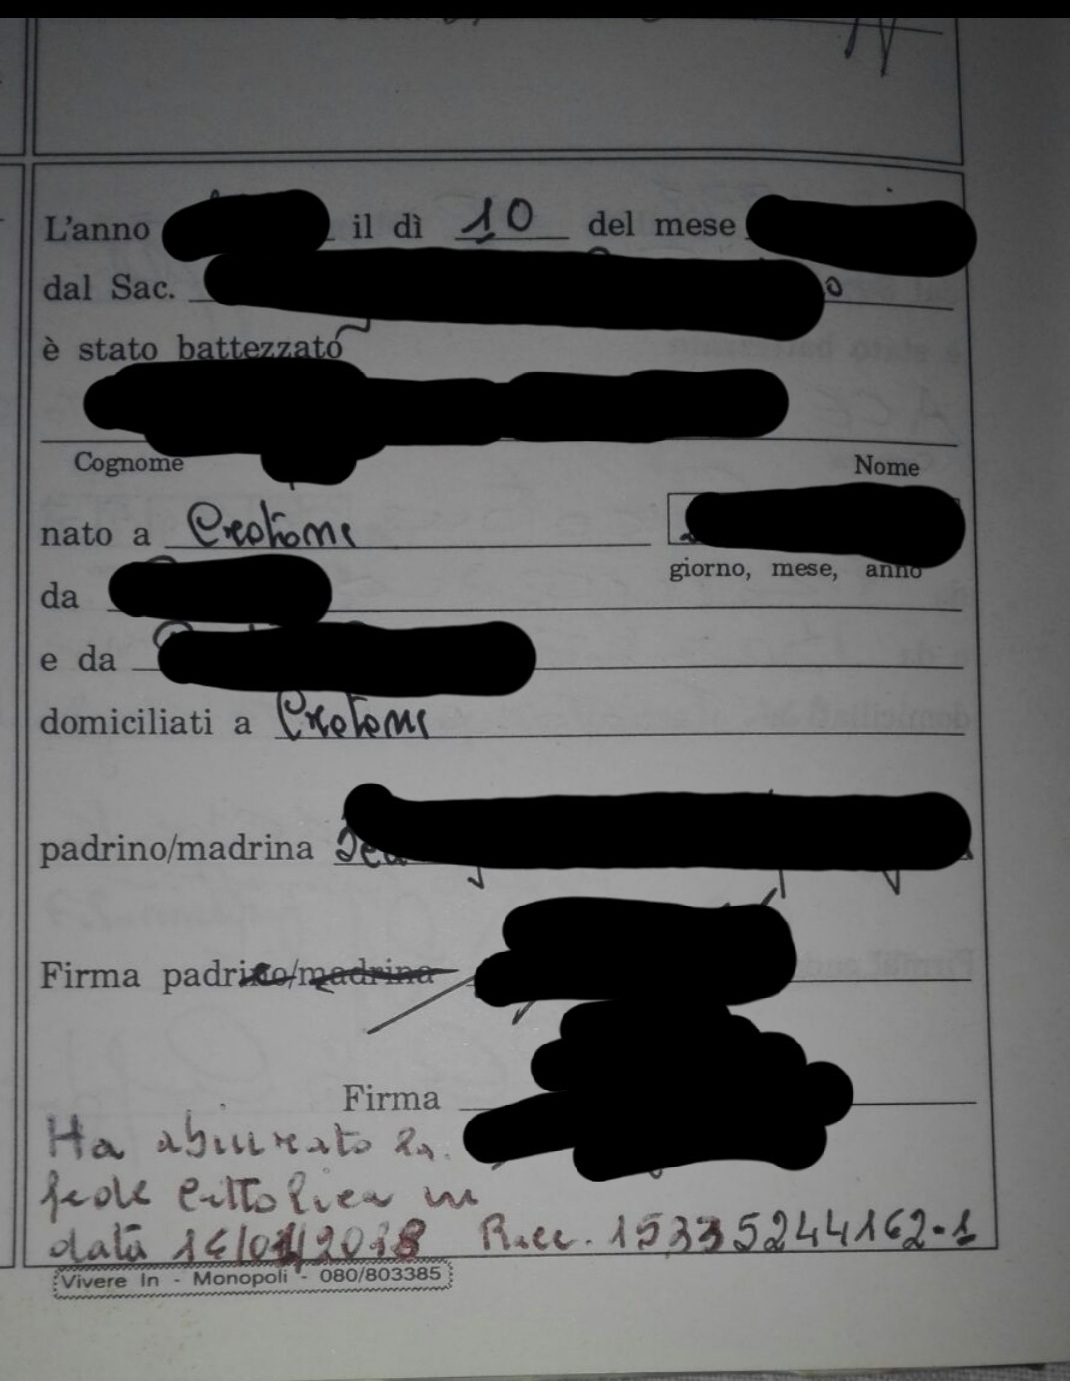 L'anno il dì 10 del mese
dal Sac.
è stato battezzato
Cognome Nome
nato a Crotone
giorno, mese, anno
da
e da
domiciliati a Crotone
padrino/madrina
Firma padrino/madrina
Firma
Ha abiurato la
fede Cattolica in
data 2018 Racc. 15335244162-1
Vivere In - Monopoli - 080/803385